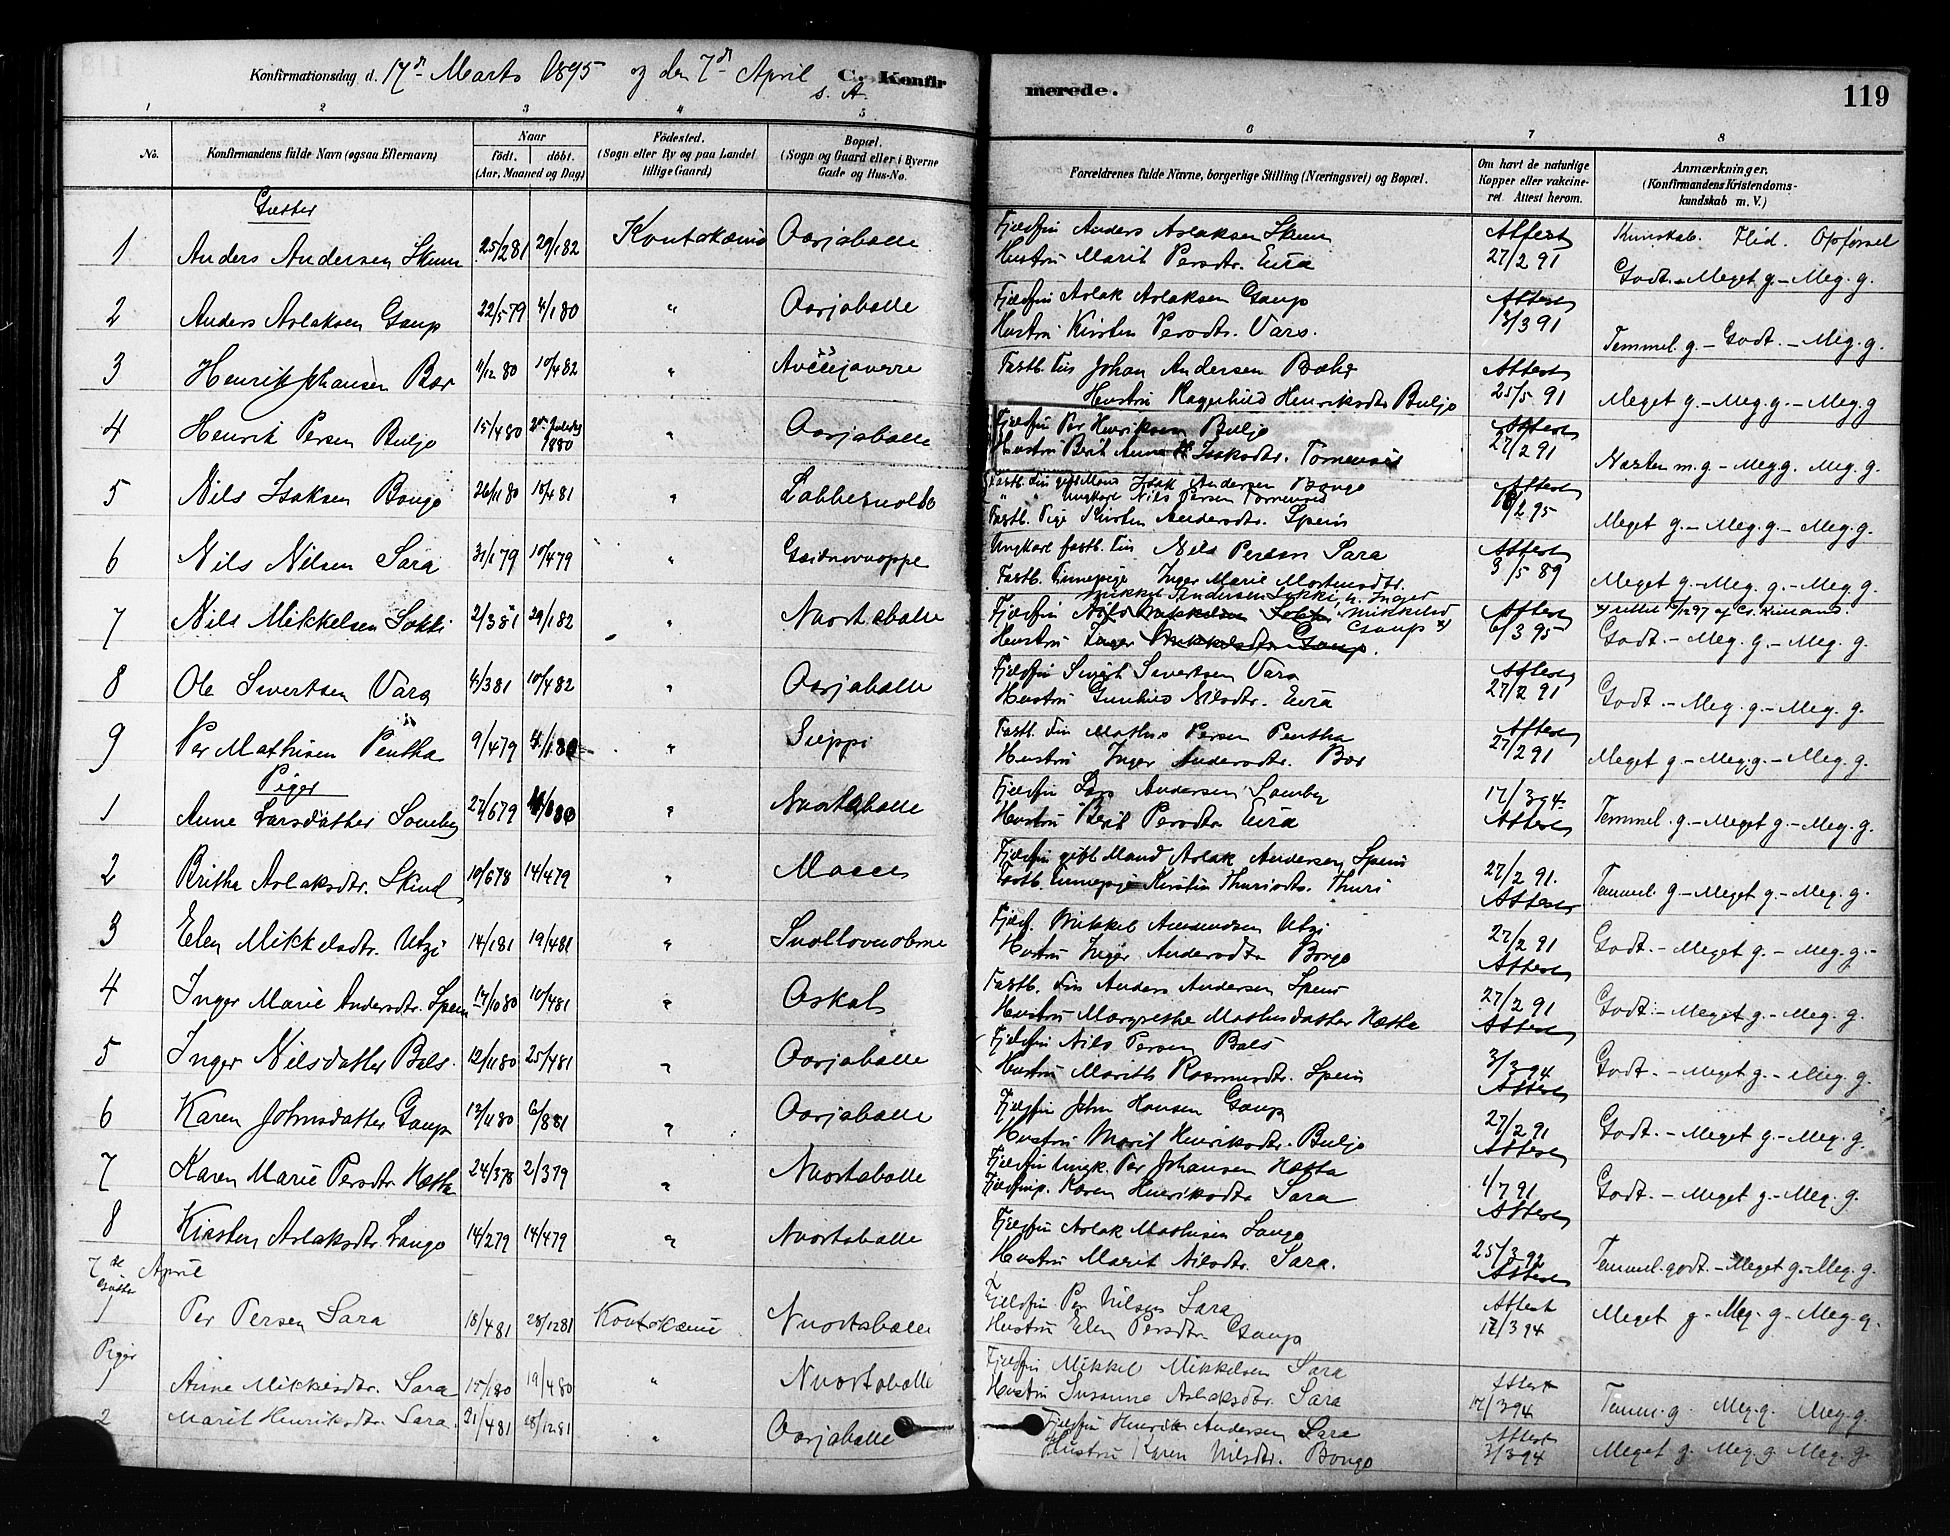 Konfirmationsdag d. 17de Marts 1895 og den 7de April s. A. C. Konfirmerede. 119
1 2 3 4 5 6 7 8
No. Konfirmandens fulde Navn (ogsaa Efternavn) Naar født. døbt. (Aar, Maaned og Dag) Födested. (Sogn eller By og paa Landet tillige Gaard) Bopæl. (Sogn og Gaard eller i Byerne Gade og Hus-No. Forældrenes fulde Navne, borgerlige Stilling (Næringsvei) og Bopæl. Om havt de naturlige Kopper eller vakcineret. Attest herom. Anmærkninger. (Konfirmandens Kristendomskundskab m. V.)
Gutter
Kundskab. Flid. Opførsel
1 Anders Andersen Skum 25/2 81 29/1 82 Kautokeino Oarjabælle Fjeldfin Anders Aslaksen Skum Attest
Hustru Marit Persdtr. Eira 27/2 91 Godt. - Meget g. - Meg. g.
2 Anders Aslaksen Gaup 22/5 79 4/1 80 " Oarjabælle Fjeldfin Aslak Aslaksen Gaup Attest
Hustru Kirsten Persdtr. Vars. 13/3 91 Temmel. g. - Godt. - Meg. g.
3 Henrik Johansen Bær 11/12 80 10/4 82 " Avčečjavrre Fastb. Fin Johan Andersen Bæhr Attest
Hustru Ragnhild Henriksdtr Buljo 25/5 91 Meget g. - Meg. g. - Meg. g
4 Henrik Persen Buljo 15/4 80 1880 " Oarjabælle Fjeldfin Per Henriksen Buljo Attest
Hustru Berit Anna Isaksdtr. Tornensis 27/2 91 Næsten m. g - Meg. g. Meg. g.
5 Nils Isaksen Bongo 26/11 80 10/4 81 " Fastb. Fin gift Mand Isak Andersen Bongo Attest
" " Ungkarl Nils Persen Tornensis
Fastb. Pige Kirsten Andersdtr. Spein /2 95 Meget g. - Meg. g. - Meg. g.
6 Nils Nilsen Sara 31/1 79 10/4 79 " Ungkarl fastb. Fin Nils Persen Sara Attest
Fastb. Finnepige Inger Marie Mortensdtr. 3/5 89 Meget g. - Meg. g. - Meg. g.
7 Nils Mikkelsen Sokki 2/3 81 29/1 82 " Nuortabælle Fjeldfin Mikkel Andersen Sokki, h. Inger Mikkelsd Gaup x) Attest x) rettet
Hustru Inger Mikkelsdtr Gaup. 6/3 95 Godt. - Meg. g. - Meg. g.
8 Ole Sivertsen Vars 4/3 81 10/4 82 " Oarjabælle Fjeldfin Sivert Sivertsen Vars Attest
Hustru Gunhild Nilsdtr. Eira 27/2 91 Godt. - Meg. g. - Meg. g.
9 Per Mathisen Pentha 9/4 79 4/1 80 " Sieppi Fastb. Fin Mathis Persen Pentha Attest
Hustru Inger Andersdtr. Bær 27/2 91 Meget g - Meg. g. - Meg. g.
Piger
1 Anne Larsdatter Somby 27/6 79 " Nuortabælle Fjeldfin Lars Andersen Somby 17/3 94
Hustru Berit Persdtr Eira Attest Temmel. g. - Meget g. - Meg. g.
2 Britha Aslaksdtr. Skind 10/6 78 14/4 79 " Maces Fjeldfin gift Mand Aslak Andersen Spein 27/2 91.
Fastb. Finnepige Kirstin Thurisdtr. Thuri Attest Temmel. g - Meget g. - Meg. g.
3 Elen Mikkelsdtr. Utzi 14/1 81 19/4 81 " Fjeldf. Mikkel Amundsen Utzi 27/2 91
Hustru Inger Andersdtr Bongo Attest Godt. - Meget g. - Meg. g.
4 Inger Marie Andersdtr. Spein 17/10 80 10/4 81 " Oskal Fastb. Fin Anders Andersen Spein 27/2 91
Hustru Margrethe Mathisdatter Hætta Attest Godt. - Meget g. - Meg. g.
5 Inger Nilsdatter Bals. 12/11 80 25/4 81 " Oarjabælle Fjeldfin Nils Persen Bals 3/3 94
Hustru Marith Rasmusdtr. Spein Attest Godt. - Meget g. - Meg. g.
6 Karen Johnsdatter Gaup 13/11 80 6/8 81 " Oarjabælle Fjeldfin John Hansen Gaup 27/2 91
Hustru Marit Henriksdtr. Buljo Attest Godt. - Meget g. - Meg. g.
7 Karen Marie Persdtr Hætta 24/3 78 2/3 79 " Nuortabælle Fjeldfin Ungk. Per Johansen Hætta 1/7 91
Fjeldfinp. Karen Henriksdtr Sara Attest Godt. - Meget g. - Meg. g.
8 Kirsten Aslaksdtr. Lango 14/2 79 14/4 79 " Nuortabælle Fjeldfin Aslak Mathisen Lango 25/3 92
Hustru Marit Nilsdtr. Sara. Attest Temmel. godt. - Meget g. - Meg. g.
7de April
Gutter
1 Per Persen Sara 18/4 81 28/12 81 Kautokeino Nuortabælle Fjeldfin Per Nilsen Sara Attest
Hustru Elen Persdtr Gaup 17/3 94 Meget g - Meg. g - Meg. g.
Piger
1 Anne Mikkelsdtr. Sara 15/1 80 19/4 80 " Nuortabælle Fjeldfin Mikkel Mikkelsen Sara Attest
Hustru Susanne Aslaksdtr. Sara 17/3 94 Temm. g. Meg. g. Meg. g.
2 Marit Henriksdtr. Sara. 21/4 81 28/12 81 " Oarjabælle Fjeldfin Henrik Andersen Sara Attest
Hustru Karen Nilsdtr. Bongo 3/3 94 Meget g. Meg. g. Meg. g.